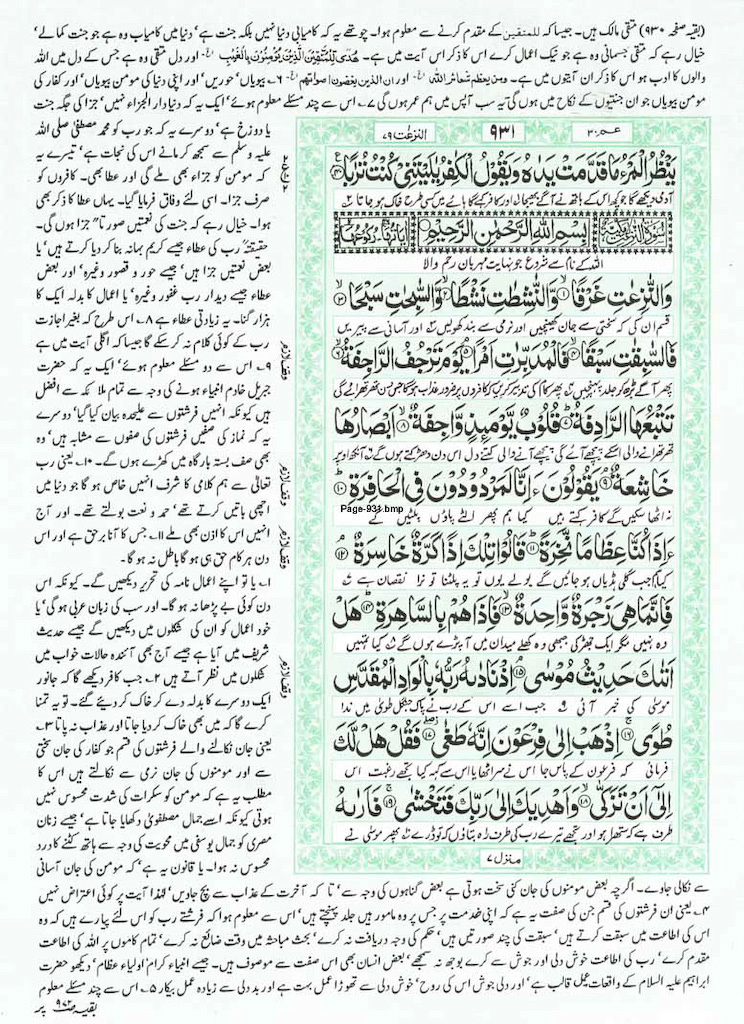 (بقیہ صفحہ ۹۳۰) متقی مالک ہیں۔ جیسا کہ للمتقین کے مقدم کرنے سے معلوم ہوا۔ چوتھے یہ کہ کامیابی دنیا نہیں بلکہ جنت ہے' دنیا میں کامیاب وہ ہے جو جنت کمالے'
خیال رہے کہ متقی جسمانی وہ ہے جو نیک اعمال کرے اس کا ذکر اس آیت میں ہے۔ هُدًى لِّلْمُتَّقِيْنَ الَّذِيْنَ يُؤْمِنُوْنَ بِالْغَيْبِ اور دل متقی وہ ہے جس کے دل میں اللہ
والوں کا ادب ہو اس کا ذکر ان آیتوں میں ہے۔ ومن يعظم شعائر اللہ اور ان الذين يغضون اصواتهم ۶۔ بیویاں' حوریں' اور اپنی دنیا کی مومن بیویاں' اور کفار کی
مومن بیویاں جو ان جنتیوں کے نکاح میں ہوں گی یہ سب آپس میں ہم عمر ہوں گی ۷۔ اس سے چند مسئلے معلوم ہوئے' ایک یہ کہ دنیا دار الجزاء نہیں' جزا کی جگہ جنت
عمّ ۳۰
۹۳۱
النّزعٰت ۷۹
يَنْظُرُ الْمَرْءُ مَا قَدَّمَتْ يَدٰهُ وَيَقُوْلُ الْكٰفِرُ يٰلَيْتَنِيْ كُنْتُ تُرٰبًا
آدمی دیکھے گا جو کچھ اس کے ہاتھ نے آگے بھیجا اور کافر کہے گا ہائے میں کسی طرح خاک ہو جاتا
بِسْمِ اللّٰهِ الرَّحْمٰنِ الرَّحِيْمِ
اللہ کے نام سے شروع جو نہایت مہربان رحم والا
وَالنّٰزِعٰتِ غَرْقًا ۱ وَّالنّٰشِطٰتِ نَشْطًا ۲ وَّالسّٰبِحٰتِ سَبْحًا ۳
قسم ان کی کہ سختی سے جان کھینچیں اور نرمی سے بند کھولیں اور آسانی سے پیریں
فَالسّٰبِقٰتِ سَبْقًا ۴ فَالْمُدَبِّرٰتِ اَمْرًا ۵ يَوْمَ تَرْجُفُ الرَّاجِفَةُ ۶
پھر آگے بڑھ کر جلد پہنچیں پھر کام کی تدبیر کریں کہ کافروں پر ضرور عذاب ہوگا جس دن تھرتھرائے گی
تَتْبَعُهَا الرَّادِفَةُ ۷ قُلُوْبٌ يَّوْمَئِذٍ وَّاجِفَةٌ ۸ اَبْصَارُهَا
تھرتھرانے والی اسکے پیچھے آئے گی پیچھے آنے والی کتنے دل اس دن دھڑکتے ہوں گے آنکھ اوپر
خَاشِعَةٌ ۹ يَقُوْلُوْنَ ءَاِنَّا لَمَرْدُوْدُوْنَ فِي الْحَافِرَةِ ۱۰
Page-931.bmp
نہ اٹھا سکیں گے کافر کہتے ہیں کیا ہم پھر الٹے پاؤں پلٹیں گے
ءَاِذَا كُنَّا عِظَامًا نَّخِرَةً ۱۱ قَالُوْا تِلْكَ اِذًا كَرَّةٌ خَاسِرَةٌ ۱۲
کیا ہم جب گلی ہڈیاں ہو جائیں گے بولے یوں تو یہ پلٹنا تو نرا نقصان ہے
فَاِنَّمَا هِيَ زَجْرَةٌ وَّاحِدَةٌ ۱۳ فَاِذَا هُمْ بِالسَّاهِرَةِ ۱۴ هَلْ
وہ نہیں مگر ایک جھڑکی جبھی وہ کھلے میدان میں آ پڑے ہوں گے کیا تمہیں
اَتٰىكَ حَدِيْثُ مُوْسٰى ۱۵ اِذْ نَادٰىهُ رَبُّهٗ بِالْوَادِ الْمُقَدَّسِ
موسٰی کی خبر آئی جب اسے اس کے رب نے پاک جنگل طویٰ میں ندا
طُوًى ۱۶ اِذْهَبْ اِلٰى فِرْعَوْنَ اِنَّهٗ طَغٰى ۱۷ فَقُلْ هَلْ لَّكَ
فرمائی کہ فرعون کے پاس جا اس نے سر اٹھایا اس سے کہہ کیا تجھے رغبت اس
اِلٰٓى اَنْ تَزَكّٰى ۱۸ وَاَهْدِيَكَ اِلٰى رَبِّكَ فَتَخْشٰى ۱۹ فَاَرٰىهُ
طرف ہے کہ ستھرا ہو اور تجھے تیرے رب کی طرف راہ بتاؤں کہ تو ڈرے پھر موسٰی نے
منزل ۷
یا دوزخ ہے' دوسرے یہ کہ جو رب کو محمد مصطفیٰ صلی اللہ
علیہ وسلم سے سمجھ کر مانے اس کی نجات ہے' تیسرے یہ
کہ مومن کو جزاء بھی ملے گی اور عطا بھی۔ کافروں کو
صرف جزا۔ اسی لئے وفاق فرمایا گیا۔ یہاں عطا کا ذکر بھی
ہوا۔ خیال رہے کہ جنت کی نعمتیں صورتاً جزا ہوں گی۔
حقیقتہ رب کی عطاء جیسے کریم بہانہ بنا کر دیا کرتے ہیں' یا
بعض نعمتیں جزا ہیں' جیسے حور و قصور وغیرہ' اور بعض
عطاء جیسے دیدار رب غفور وغیرہ' یا اعمال کا بدلہ ایک کا
ہزار گنا۔ یہ زیادتی عطاء ہے ۸۔ اس طرح کہ بغیر اجازت
رب کے کوئی کلام نہ کر سکے گا جیسا کہ اگلی آیت میں ہے
۹۔ اس سے دو مسئلے معلوم ہوئے' ایک یہ کہ حضرت
جبریل خادم انبیاء ہونے کی وجہ سے تمام ملائکہ سے افضل
ہیں کیونکہ انہیں فرشتوں سے علیحدہ بیان کیا گیا' دوسرے
یہ کہ نماز کی صفیں فرشتوں کی صفوں سے مشابہ ہیں' وہ
بھی صف بستہ بارگاہ میں کھڑے ہوں گے۔ ۱۰۔ یعنی رب
تعالیٰ سے ہم کلامی کا شرف انہیں خاص ہو گا جو دنیا میں
اچھی باتیں کرتے تھے' حمد و نعت بولتے تھے۔ اور آج
انہیں اس کا اذن بھی ملے ۱۱۔ جس کا آنا برحق ہے اور اس
دن ہر کام حق ہی ہو گا باطل نہ ہو گا۔
۱۔ یا تو اپنے اعمال نامہ کی تحریر دیکھیں گے۔ کیونکہ اس
دن کوئی بے پڑھا نہ ہو گا۔ اور سب کی زبان عربی ہو گی' یا
خود اعمال کو ان کی شکلوں میں دیکھیں گے جیسے حدیث
شریف میں آیا ہے جیسے آج بھی آئندہ حالات خواب میں
شکلوں میں نظر آتے ہیں ۲۔ جب کافر دیکھے گا کہ جانور
ایک دوسرے کا بدلہ دے کر خاک کر دیئے گئے۔ تو یہ تمنا
کرے گا کہ میں بھی خاک کر دیا جاتا اور عذاب نہ پاتا ۳۔
یعنی جان نکالنے والے فرشتوں کی قسم جو کفار کی جان سختی
سے اور مومنوں کی جان نرمی سے نکالتے ہیں اس کا
مطلب یہ ہے کہ مومن کو سکرات کی شدت محسوس نہیں
ہوتی کیونکہ اسے جمال مصطفوی دکھایا جاتا ہے' جیسے زنان
مصری کو جمال یوسفی میں محویت کی وجہ سے ہاتھ کٹنے کا درد
محسوس نہ ہوا۔ یا قانون یہ ہے' کہ مومن کی جان آسانی
سے نکالی جاوے۔ اگرچہ بعض مومنوں کی جان کنی سخت ہوتی ہے بعض گناہوں کی وجہ سے' تاکہ آخرت کے عذاب سے بچ جاویں' لہٰذا آیت پر کوئی اعتراض نہیں
۴۔ یعنی ان فرشتوں کی قسم جن کی صفت یہ ہے کہ اپنی خدمت پر جس پر وہ مامور ہیں جلد پہنچتے ہیں' اس سے معلوم ہوا کہ فرشتے رب کو اس لئے پیارے ہیں کہ وہ
اس کی اطاعت میں سبقت کرتے ہیں' سبقت کی چند صورتیں ہیں' حکم کی وجہ دریافت نہ کرے' بحث مباحثہ میں وقت ضائع نہ کرے' تمام کاموں پر اللہ کی اطاعت
مقدم کرے' رب کی اطاعت خوش دلی اور جوش سے کرے بوجھ نہ سمجھے' بعض انسان بھی اس صفت سے موصوف ہیں۔ جیسے انبیاء کرام' اولیاء عظام' دیکھو حضرت
ابراہیم علیہ السلام کے واقعات عمل قالب ہے' اور دلی جوش اس کی روح' خوش دلی سے تھوڑا عمل بہت ہے اور بد دلی سے زیادہ عمل بیکار ۵۔ اس سے چند مسئلے معلوم
بقیہ صفحہ ۹۷۲ پر